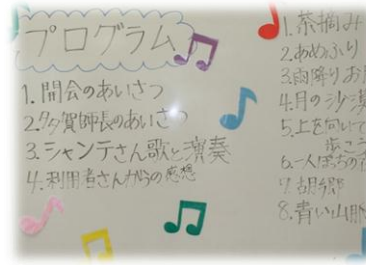 プログラム
1.開会のあいさつ
2.多賀師長のあいさつ
3.シャンテさん歌と演奏
4.利用者さんからの感想
1.茶摘み
2.あめふり
3.雨降りお
4.月の沙漠
5.上を向いて
歩こう
6.一人ぼっちの
7.故郷
8.青い山脈